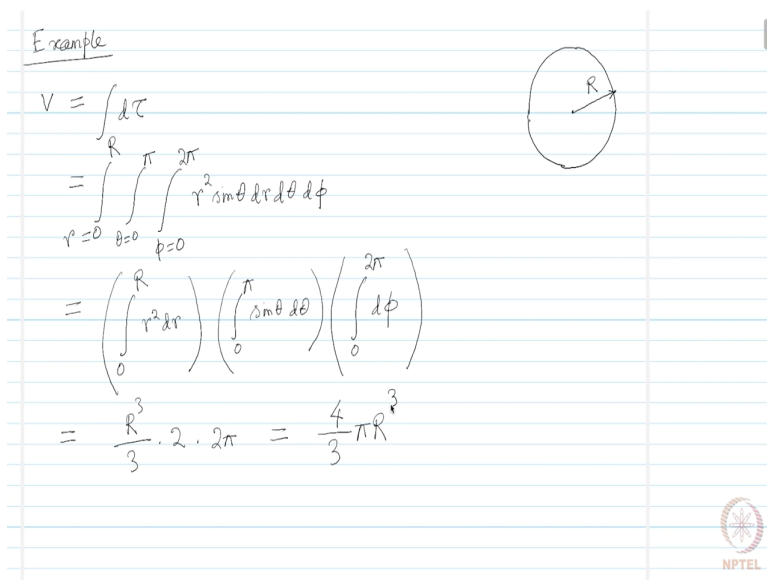 Example
R
V = ∫ dτ
= ∫_{r=0}^{R} ∫_{θ=0}^{π} ∫_{φ=0}^{2π} r² sinθ dr dθ dφ
= ( ∫_0^R r² dr ) ( ∫_0^π sinθ dθ ) ( ∫_0^{2π} dφ )
= R³/3 · 2 · 2π = 4/3 πR³
NPTEL